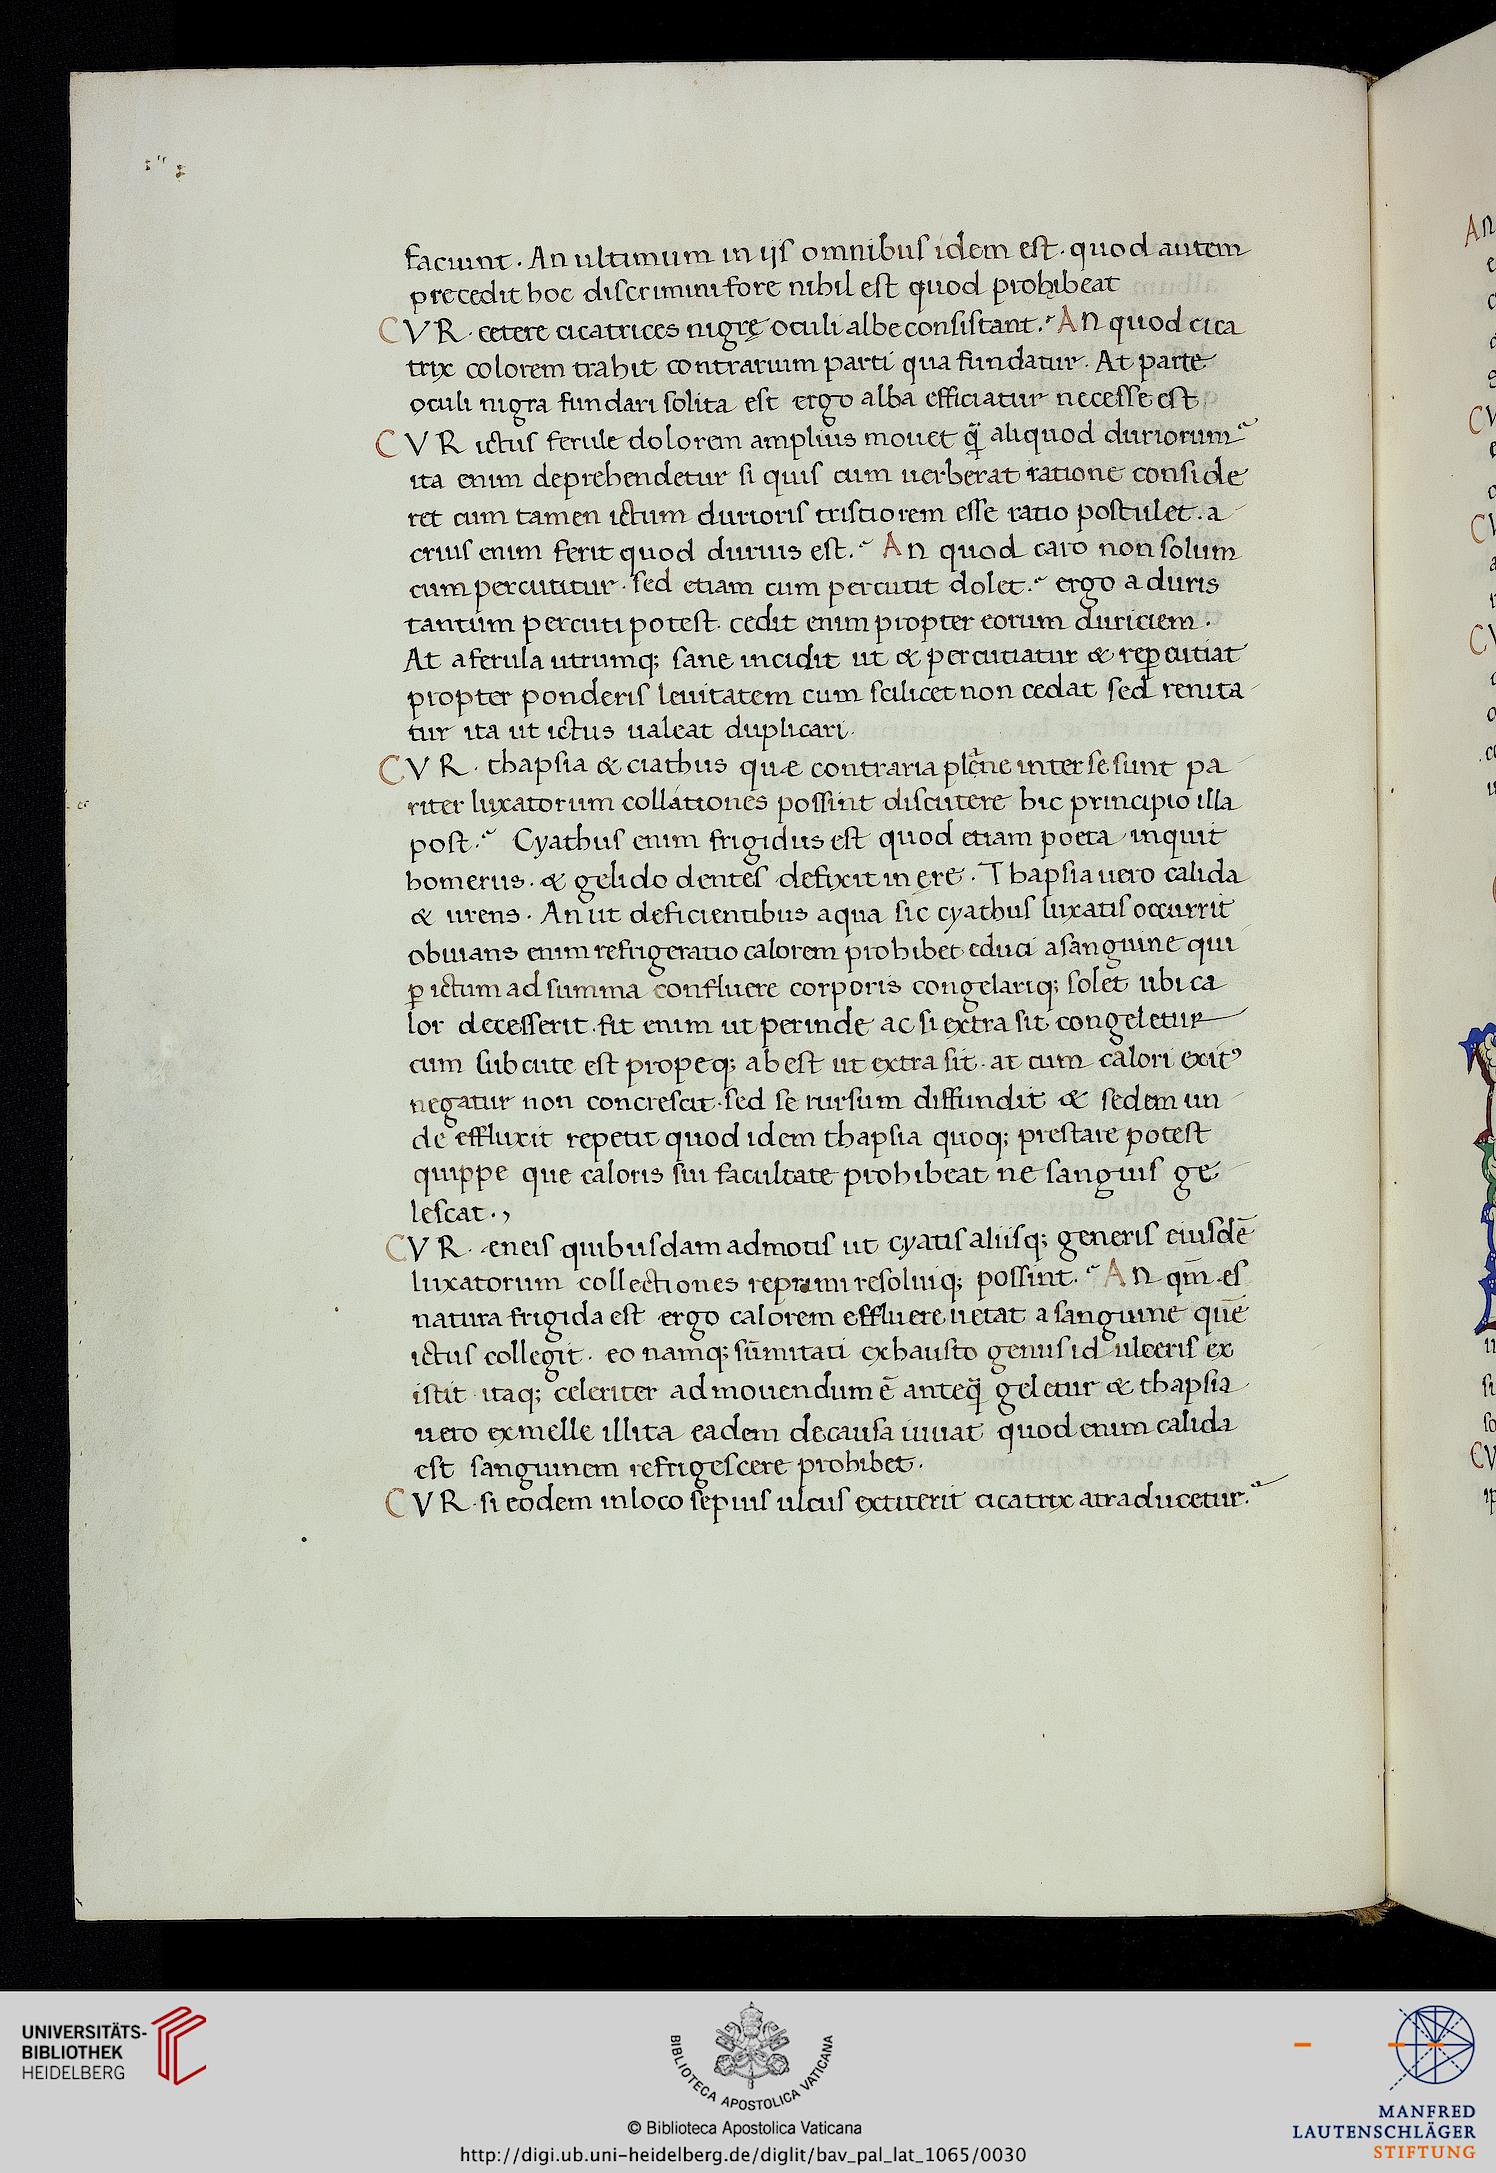 faciunt. An ultimum in ijs omnibus idem est. quod autem
precedit hoc discrimini fore nihil est quod prohibeat
CVR. cetere cicatrices nigrę oculi albe consistant. An quod cica
trix colorem trahit contrarium parti qua fundatur. At parte
oculi nigra fundari solita est ergo alba efficiatur necesse est
CVR ictus ferule dolorem amplius mouet q̃ aliquod duriorum
ita enim deprehendetur si quis cum uerberat ratione conside
ret cum tamen ictum durioris tristiorem esse ratio postulet. a
crius enim ferit quod durius est. An quod caro non solum
cum percutitur. sed etiam cum percutit dolet. ergo a duris
tantum percuti potest. cedit enim propter eorum duriciem.
At a ferula utrumq; sane incidit ut & percutiatur & reꝑcutiat
propter ponderis leuitatem cum scilicet non cedat sed renita
tur ita ut ictus ualeat duplicari.
CVR. thapsia & ciathus quæ contraria plãne inter se sunt pa
riter luxatorum collationes possint discutere hic principio illa
post. Cyathus enim frigidus est quod etiam poeta inquit
homerus. & gelido dentes defixit in ęre. Thapsia uero calida
& urens. An ut deficientibus aqua sic cyathus luxatis occurrit
obuians enim refrigeratio calorem prohibet educi a sanguine qui
ꝑ ictum ad summa confluere corporis congelariq; solet ubi ca
lor decesserit. fit enim ut perinde ac si extra sit congeletur
cum sub cute est propeq; abest ut extra sit. at cum calori exitꝰ
negatur non concrescit. sed se rursum diffundit & sedem un
de effluxit repetit quod idem thapsia quoq; prestare potest
quippe que caloris sui facultate prohibeat ne sanguis ge
lescat.,
CVR. eneis quibusdam admotis ut cyatis aliisq; generis eiusdē
luxatorum collectiones reprimi resoluiq; possint. An qm̄ es
natura frigida est ergo calorem effluere uetat a sanguine quē
ictus collegit. eo namq; sūmitati exhausto genus id ulceris ex
istit itaq; celeriter admouendum ē anteq̃ geletur & thapsia
uero ex melle illita eadem de causa iuuat quod enim calida
est sanguinem refrigescere prohibet.
CVR. si eodem in loco sepius ulcus extiterit cicatrix atra ducetur.
UNIVERSITÄTS-
BIBLIOTHEK
HEIDELBERG
BIBLIOTECA APOSTOLICA VATICANA
© Biblioteca Apostolica Vaticana
http://digi.ub.uni-heidelberg.de/diglit/bav_pal_lat_1065/0030
MANFRED
LAUTENSCHLÄGER
STIFTUNG